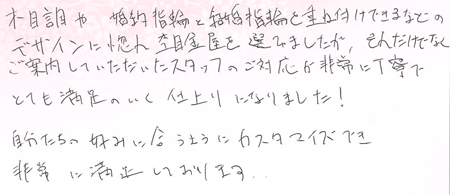 木目調や 婚約指輪と結婚指輪と重ね付けできるなどの
デザインに惚れ 杢目金屋を選びましたが、それだけでなく
ご案内していただいたスタッフのご対応が非常に丁寧で
とても満足のいく 仕上りになりました！
自分たちの好みに合うようにカスタマイズでき
非常に満足しております..